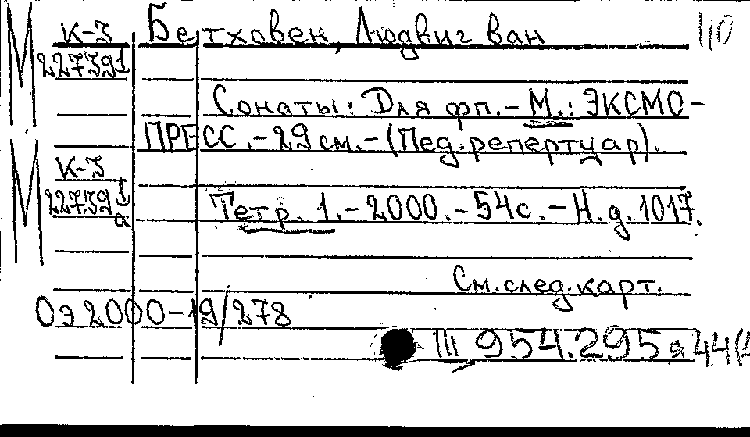 М К-3 Бетховен, Людвиг ван
227391
Сонаты: Для фп. – М.: ЭКСМО-
ПРЕСС. – 29 см. – (Пед. репертуар).
М К-3
227391
а Тетр. 1. – 2000. – 54 с. – Н. д. 1017.
См. след. карт.
Оэ 2000-19/278
III 954.295